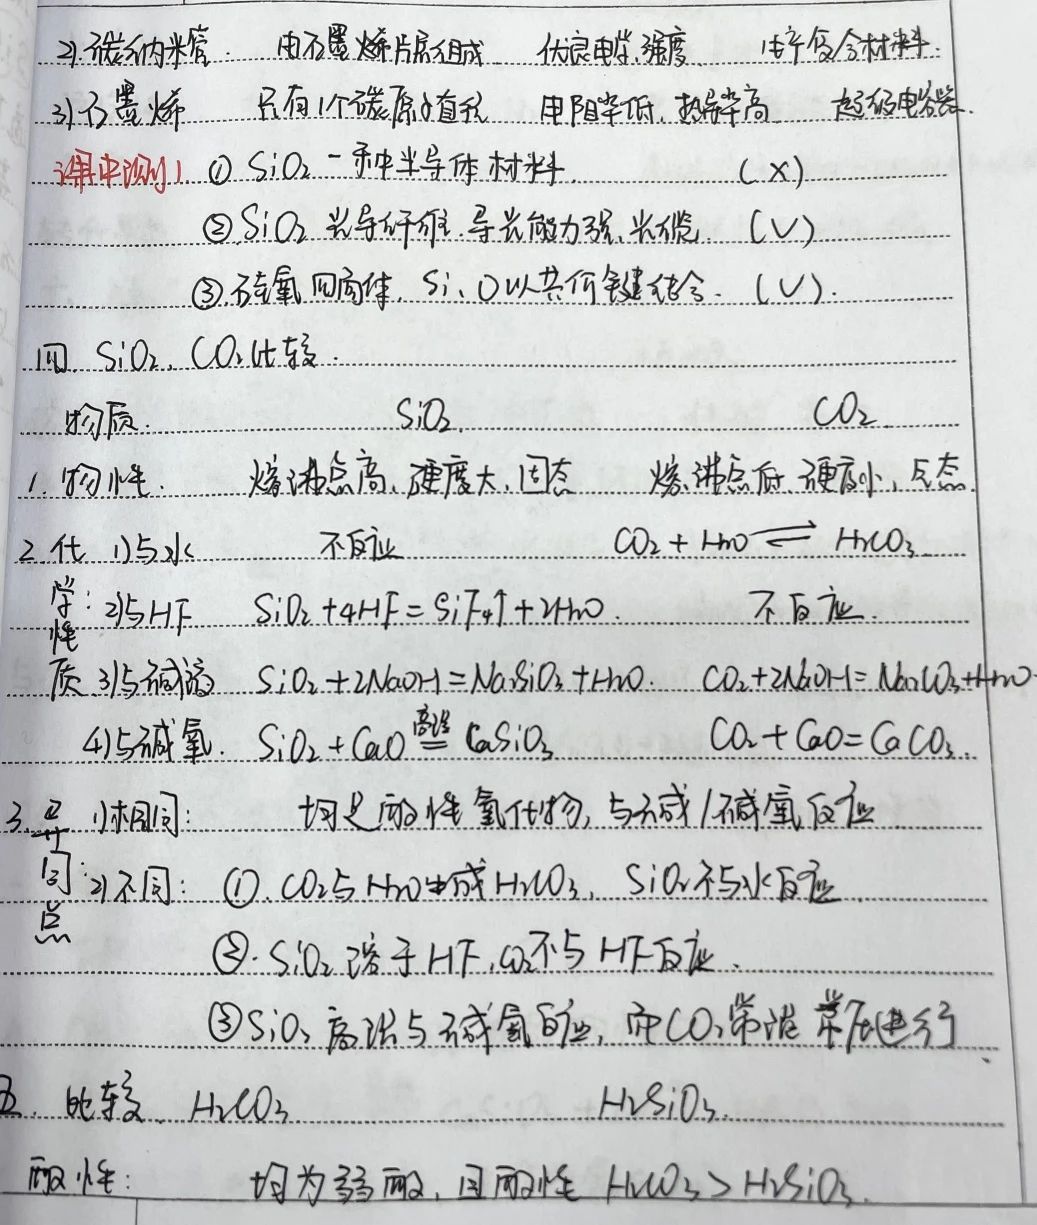 2).碳纳米管. 由石墨烯片层组成 优良电学、强度 生产复合材料.
3)石墨烯 只有1个碳原子直径 电阻率低、热导率高 超级电容器.
课中测1. ① SiO2一种半导体材料. (×)
②.SiO2 光导纤维.导光能力强、光缆. (√)
③.硅氧四面体. Si、O以共价键结合. (√).
四. SiO2、CO2比较.
物质. SiO2. CO2
1.物性. 熔沸点高、硬度大、固态 熔.沸点低.硬度小、气态.
2.化 1)与水 不反应 CO2+H2O⇌H2CO3
学:2)与HF SiO2+4HF=SiF4↑+2H2O. 不反应.
性
质 3)与碱溶 SiO2+2NaOH=Na2SiO3+H2O. CO2+2NaOH=Na2CO3+H2O.
4)与碱氧. SiO2+CaO 高温= CaSiO3 CO2+CaO=CaCO3.
3.异 1)相同: 均是酸性氧化物,与碱/碱氧反应
同:2)不同: ①.CO2与H2O生成H2CO3、SiO2不与水反应
点
②.SiO2溶于HF,CO2不与HF反应、
③SiO2高温与碱氧反应,而CO2常温常压进行、
五.比较 H2CO3 H2SiO3.
酸性: 均为弱酸,且酸性 H2CO3>H2SiO3.